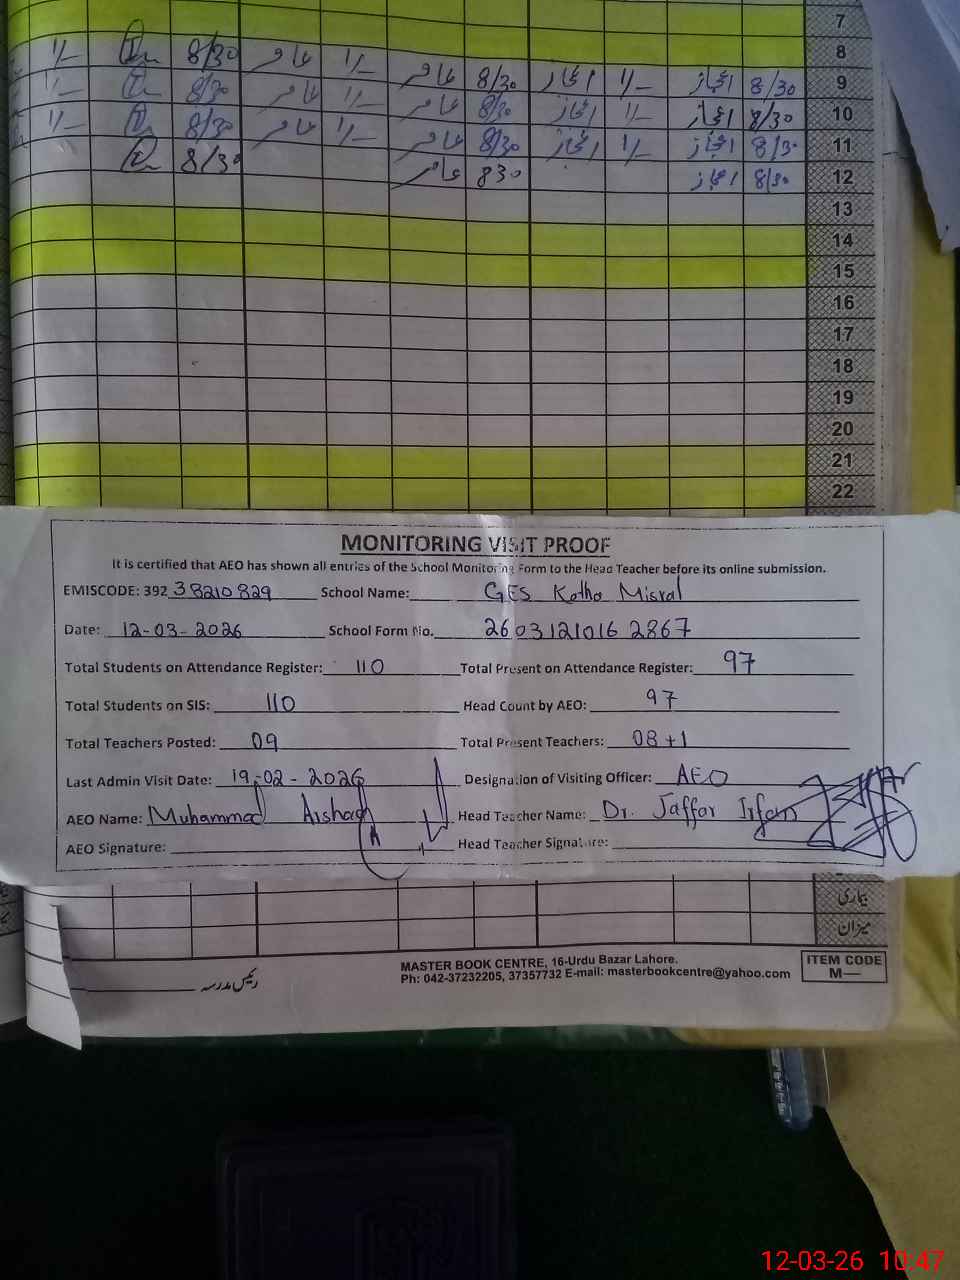 7
8
1/- 8/30 عامر 1/- عامر 8/30 اعجاز 1/- اعجاز 8/30 9
1/- 8/30 عامر 1/- عامر 8/30 اعجاز 1/- اعجاز 8/30 10
1/- 8/30 عامر 1/- عامر 8/30 اعجاز 1/- اعجاز 8/30 11
8/30 عامر 830 اعجاز 8/30 12
13
14
15
16
17
18
19
20
21
22
MONITORING VISIT PROOF
It is certified that AEO has shown all entries of the School Monitoring Form to the Head Teacher before its online submission.
EMISCODE: 392 38210829 School Name: GES Kotha Misral
Date: 12-03-2026 School Form No. 2603121016 2867
Total Students on Attendance Register: 110 Total Present on Attendance Register: 97
Total Students on SIS: 110 Head Count by AEO: 97
Total Teachers Posted: 09 Total Present Teachers: 08+1
Last Admin Visit Date: 19-02-2026 Designation of Visiting Officer: AEO
AEO Name: Muhammad Head Teacher Name: Dr. Jaffar Irfan
AEO Signature: Head Teacher Signature:
بیماری
میزان
رئیس مدرسہ
MASTER BOOK CENTRE, 16-Urdu Bazar Lahore.
Ph: 042-37232205, 37357732 E-mail: masterbookcentre@yahoo.com
ITEM CODE
M—
12-03-26 10:47